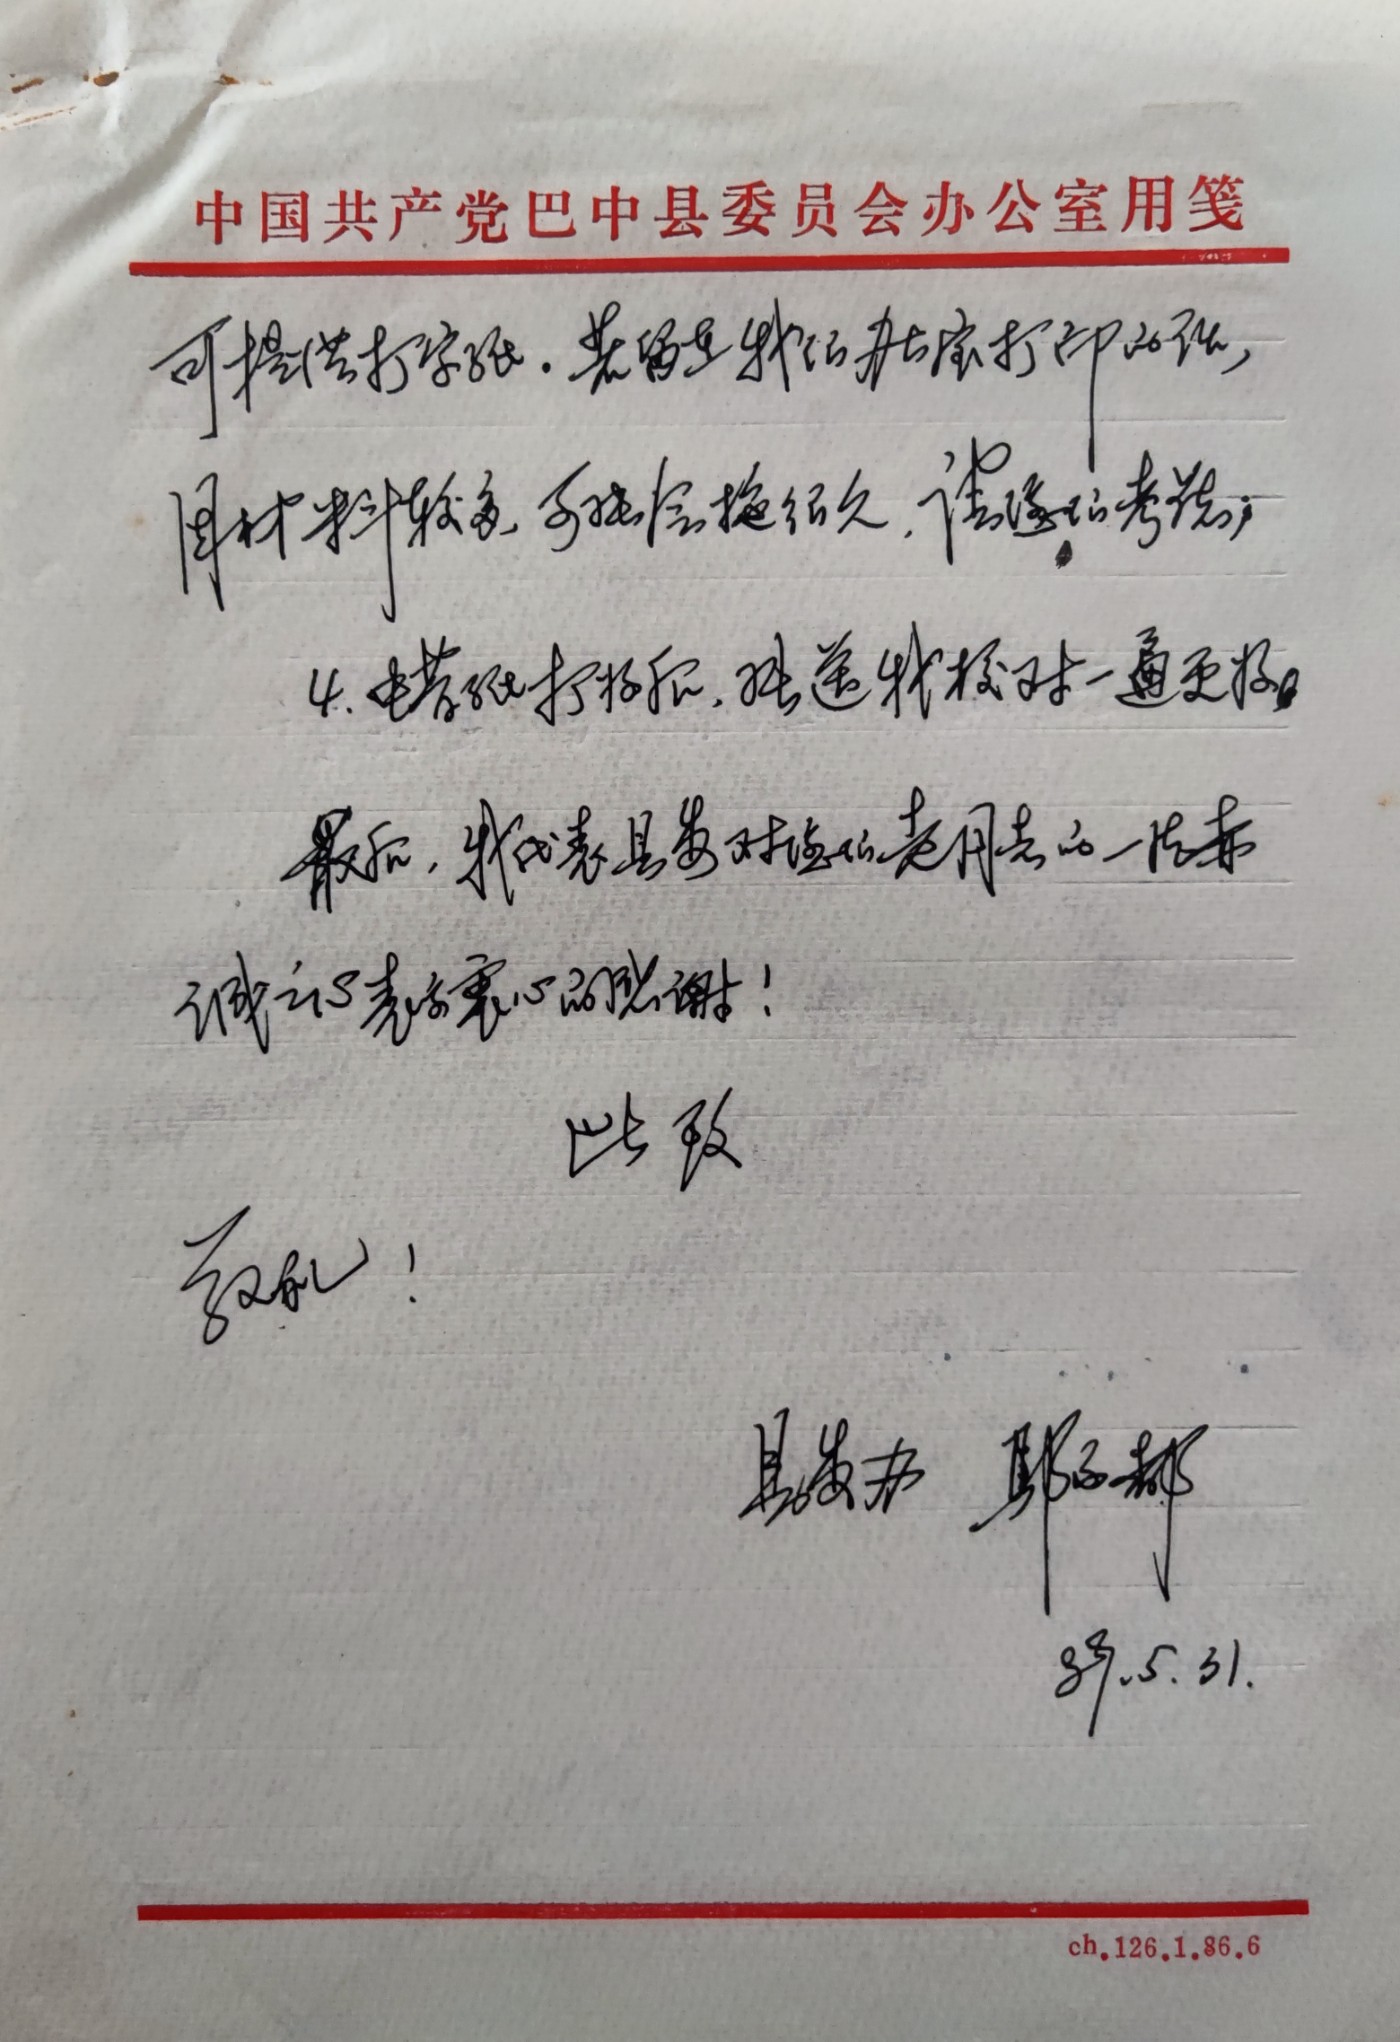 中国共产党巴中县委员会办公室用笺
可提供打字纸。若留在我们办公室打印的话，
因材料较多，可能会拖很久，请你们考虑；
4. 电蜡纸打好后，能送我校对一遍更好。
最后，我代表县委对你们老同志的一片赤
诚之心表示衷心的感谢！
此致
敬礼！
县委办
87.5.31.
ch.126.1.86.6